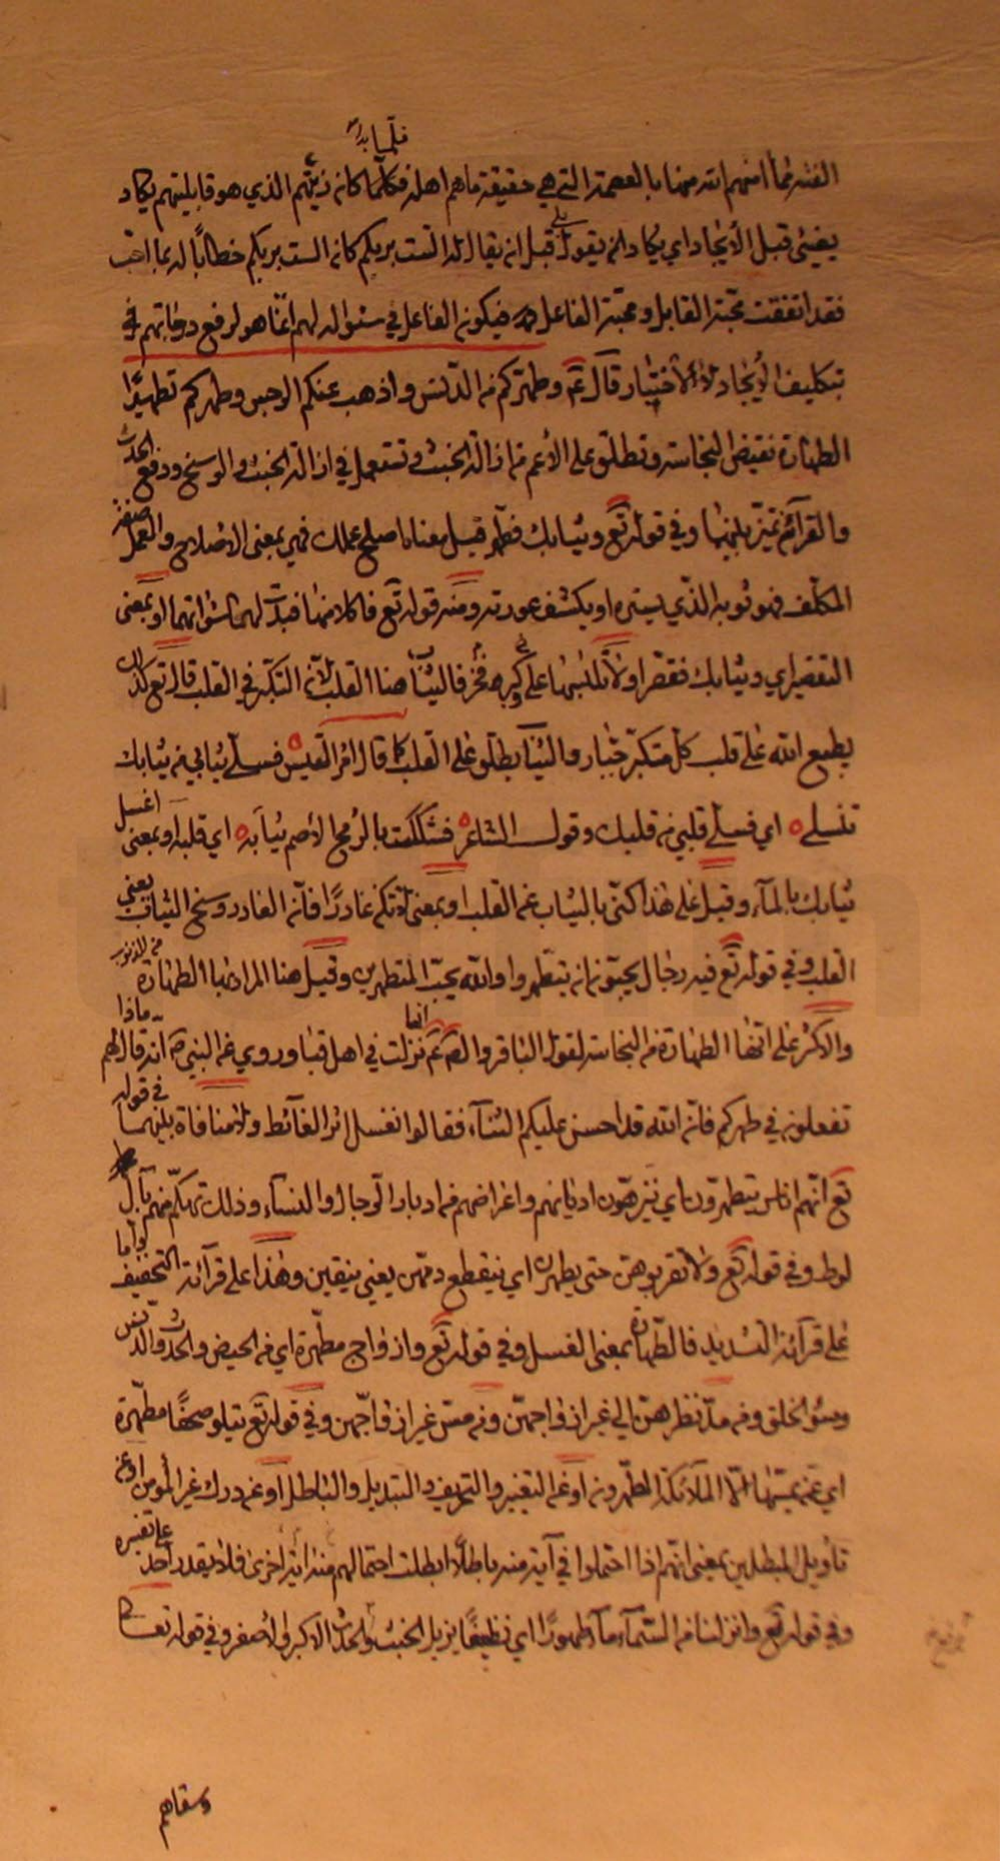 فلما بدا
الفتنة فما امنهم الله منها بالعصمة التي هي حقيقة ما هم اهله فكلما كان زيتهم الذي هو قابليتهم يكاد
يضيئ قبل الأيجاد اي يكاد ان يقول بلى قبل ان يقال له الست بربكم كان الست بربكم خطاباً له بما احب
فقد اتفقت محبة القابل ومحبة الفاعل فيكون الفاعل في سئواله لهم انما هو لرفع درجاتهم في
تكليف الأيجاد الأختيار قال ع وطهركم من الدنس واذهب عنكم الرجس وطهركم تطهيرًا
الطهارة نقيض النجاسة وتطلق على الأعم من ازالة الخبث وتستعمل في ازالة الخبث والوسخ ورفع الحدث
والقرائن تميز بينها وفي قوله تع وثيابك فطهر قيل معناه اصلح عملك فهي بمعنى الاصلاح والعمل صفة
المكلف فهو ثوبه الذي يستره او يكشف عورته ومنه قوله تع فاكلا منها فبدت لهما سواتهما او بمعنى
التقصير اي وثيابك فقصر او لا تلبسها على كبر وفخر فالثياب هنا القلب لأن التكبر في القلب قال تع كذلك
يطبع الله على قلب كل متكبر جبار والثياب يطلق على القلب كما قال امرؤ القيس فسلي ثيابي من ثيابك
تنسلي اي فسلي قلبي من قلبك وقول الشاعر فشككت بالرمح الأصم ثيابه اي قلبه او بمعنى اغسل
ثيابك بالماء وقيل على هذا كنى بالثياب عن القلب او بمعنى لا تكن غادرًا فان الغادر وسخ الثياب يعني
القلب وفي قوله تع فيه رجال يحبون ان يتطهروا والله يحب المتطهرين وقيل هنا المراد بها الطهارة من الذنوب
والاكثر على انها الطهارة من النجاسة لقول الباقر والص ع انها نزلت في اهل قبا وروي عن النبي ص انه قال لهم ماذا
تفعلون في طهركم فان الله قد احسن عليكم الثناء فقالوا نغسل اثر الغائط ولا منافاة بينهما في قوله
تع انهم اناس يتطهرون اي يتنزهون اديانهم واغراضهم من ادبار الرجال والنساء وذلك تهكم منهم بآل
لوط وفي قوله تع ولا تقربوهن حتى يطهرن اي ينقطع دمهن يعني ينقين وهذا على قرآئة التخفيف واما
على قرآئة التشديد فالطهارة بمعنى الغسل وفي قوله تع وازواج مطهرة اي من الحيض والحدث والدنس
وسوء الخلق ومن مد نظرهن الى غير ازواجهن ومن مس غير ازواجهن وفي قوله تع يتلو صحفًا مطهرة
اي عن يمسها الا الملآئكة المطهرون او عن التغيير والتحريف والتبديل والباطل او عن درك غير المؤمن او عن
تأويل المبطلين بمعنى انهم اذا احتملوا في آية منه باطلًا ابطلت احتمالهم منه اية اخرى فلا يقدر احد على تغييره
وفي قوله تع وانزلنا من السمآء مآء طهورًا اي نظيفًا يزيل الخبث والحدث الاكبر والأصغر وفي قوله تعا
وسقاهم